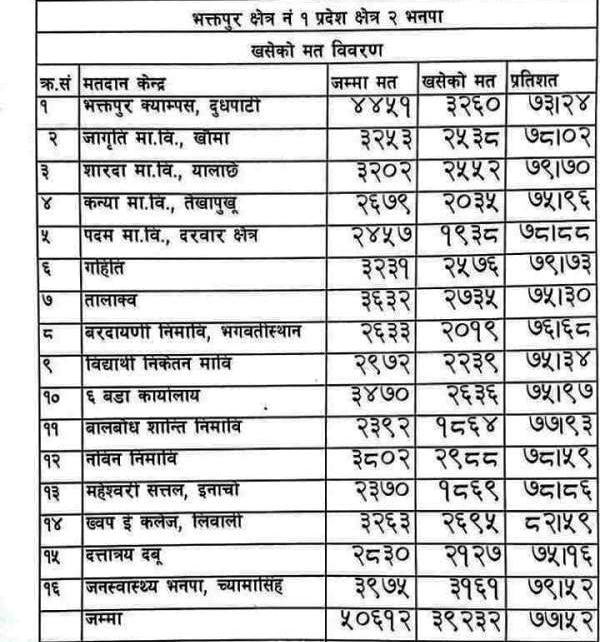 भक्तपुर क्षेत्र नं १ प्रदेश क्षेत्र २ भनपा
खसेको मत विवरण
क्र.सं मतदान केन्द्र जम्मा मत खसेको मत प्रतिशत
१ भक्तपुर क्याम्पस, दुधपाटी ४४५१ ३२६० ७३।२४
२ जागृति मा.वि., खौमा ३२५३ २५३८ ७८।०२
३ शारदा मा.वि., यालाछे ३२०२ २५५२ ७९।७०
४ कन्या मा.वि., तेखापुखू २६७९ २०३५ ७५।९६
५ पदम मा.वि., दरवार क्षेत्र २४५७ १९३८ ७८।८८
६ गहिति ३२३१ २५७६ ७९।७३
७ तालाक्व ३६३२ २७३५ ७५।३०
८ बरदायणी निमावि, भगवतीस्थान २६३३ २०१९ ७६।६८
९ विद्यार्थी निकेतन मावि २९७२ २२३९ ७५।३४
१० ६ बडा कार्यालाय ३४७० २६३६ ७५।९७
११ बालबोध शान्ति निमावि २३९२ १८६४ ७७।९३
१२ नविन निमावि ३८०२ २९८८ ७८।५९
१३ महेश्वरी सत्तल, इनाचो २३७० १८६९ ७८।८६
१४ ख्वप ई कलेज, लिवाली ३२६३ २६९५ ८२।५९
१५ दत्तात्रय दबू २८३० २१२७ ७५।१६
१६ जनस्वास्थ्य भनपा, च्यामासिंह ३९७५ ३१६१ ७९।५२
जम्मा ५०६१२ ३९२३२ ७७।५२